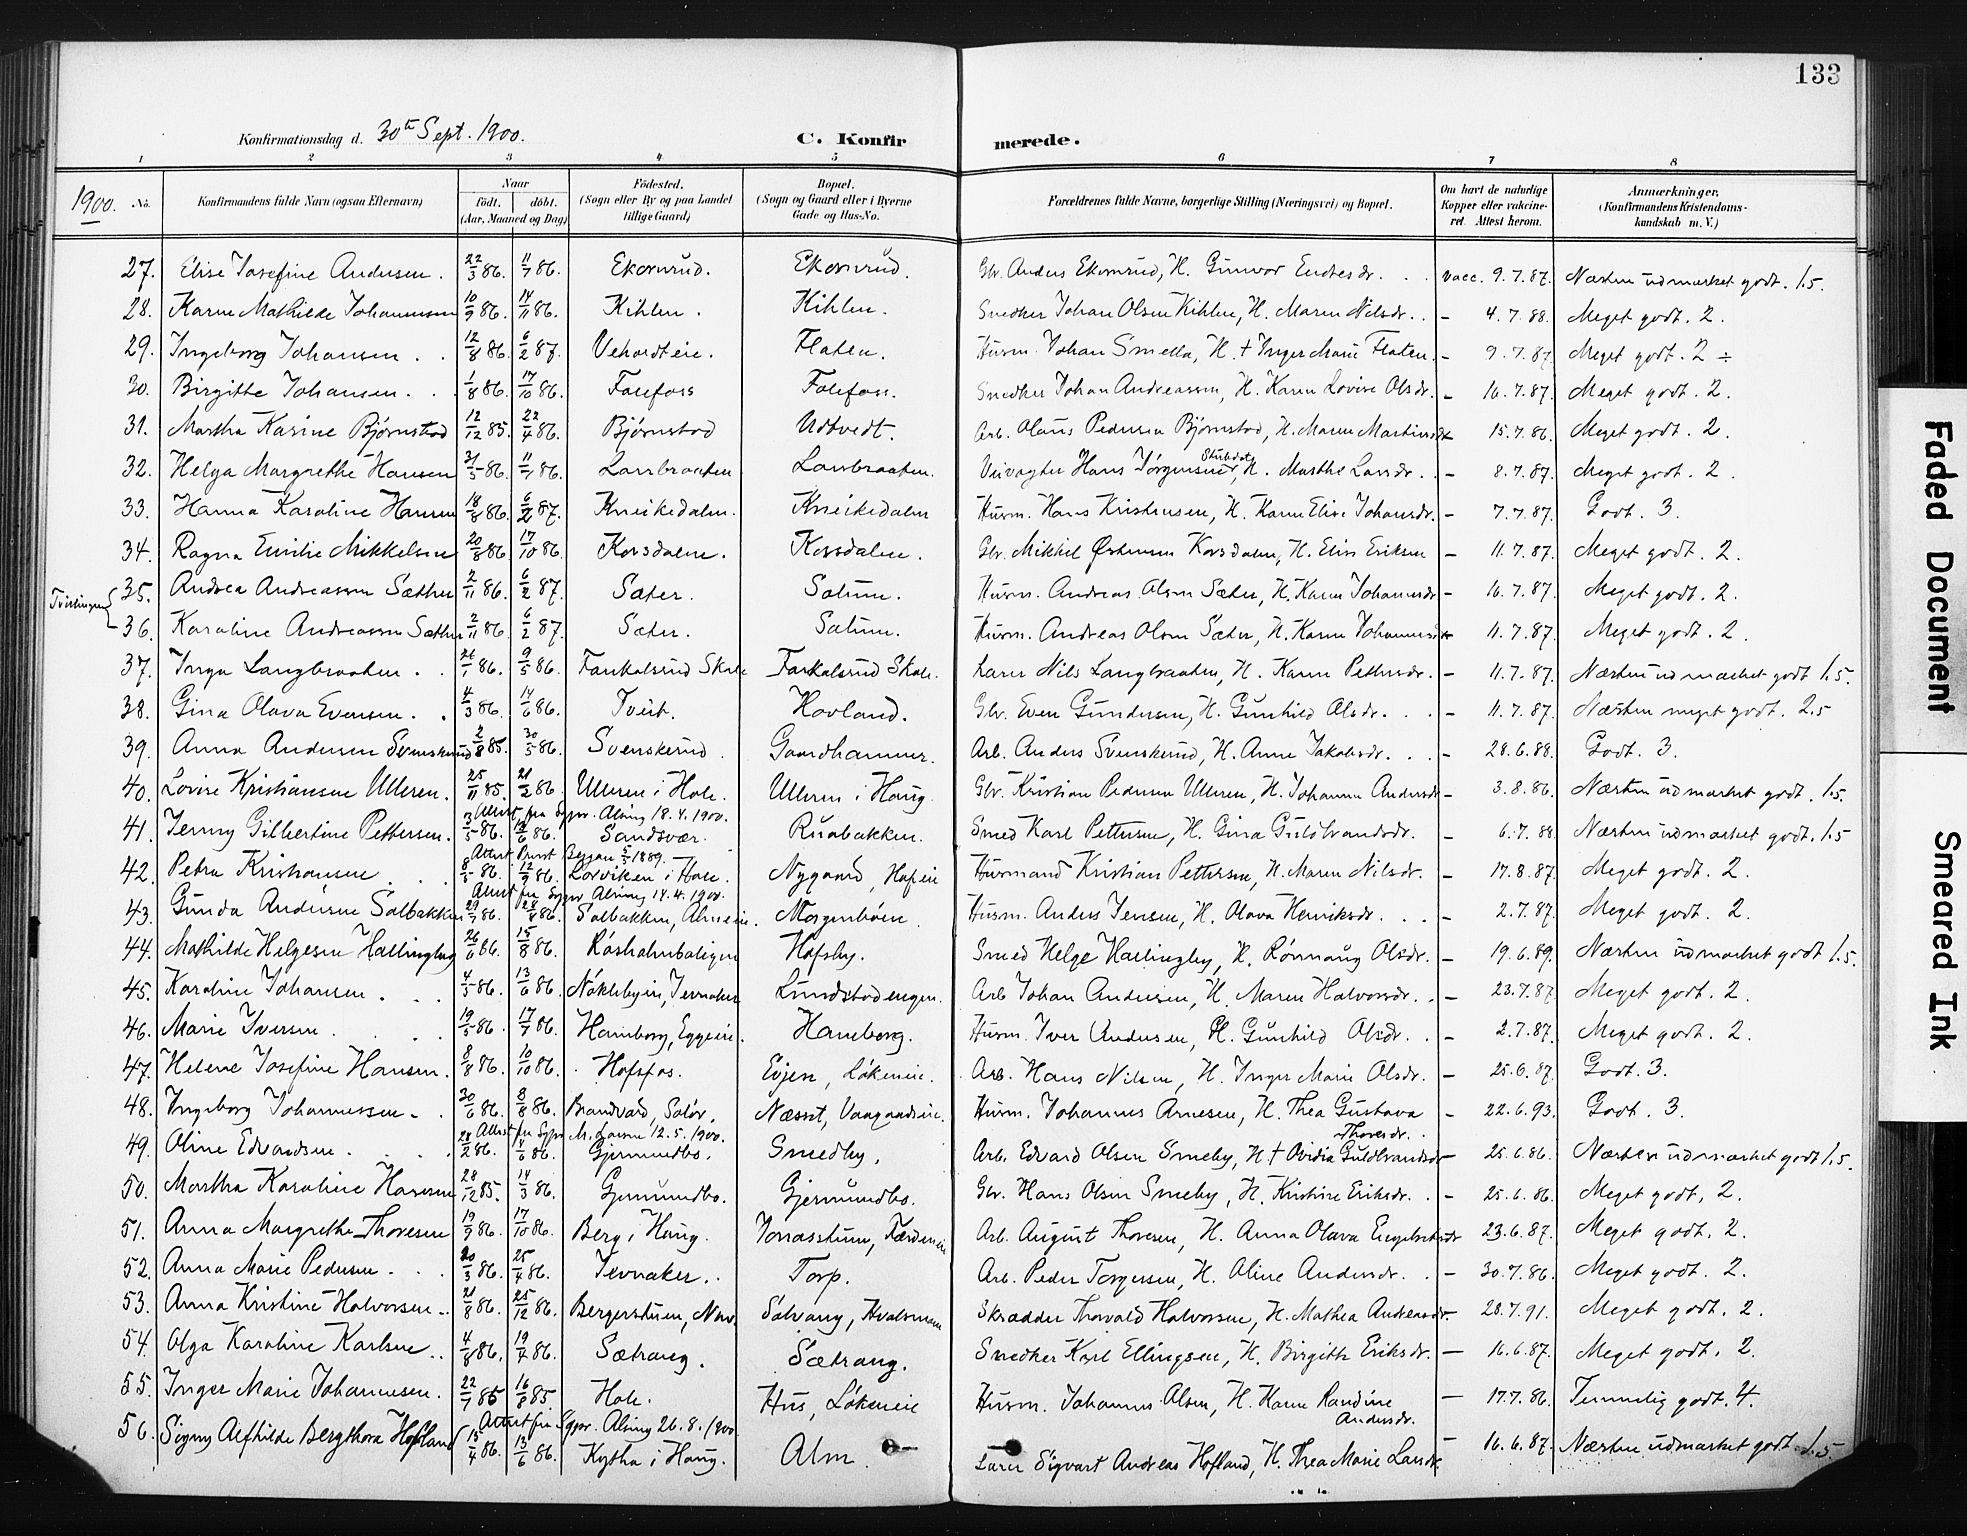 133
Konfirmationsdag d. 30th Sept. 1900. C. Konfirmerede.
1 2 3 4 5 6 7 8
1900. No. Konfirmandens fulde Navn (ogsaa Efternavn) Naar født. døbt. (Aar, Maaned og Dag) Fødested. (Sogn eller By og paa Landet tillige Gaard) Bopæl. (Sogn og Gaard eller i Byerne Gade og Hus-No. Forældrenes fulde Navne, borgerlige Stilling (Næringsvei) og Bopæl. Om havt de naturlige Kopper eller vakcineret. Attest herom. Anmærkninger. (Konfirmandens Kristendomskundskab m. V.)
27. Elise Josefine Andersen. 22/3 86. 11/7 86. Ekornrud. Ekornrud. Gbr. Anders Ekornrud, H. Gunvor Endresdr. vacc. 9.7.87. Næsten udmærket godt. 1.5.
28. Karen Mathilde Johannessen 10/9 86. 14/11 86. Kihlen. Kihlen. Snedker Johan Olsen Kihlen, H. Maren Nilsdr. - 4.7.88. Meget godt. 2.
29. Ingeborg Johansen. 12/8 86. 6/2 87. Vehardteie. Flaten. Husm. Johan Smella, H. † Inger Marie Flaten. - 9.7.87. Meget godt. 2 ÷
30. Birgitte Johansen. 1/8 86. 17/10 86. Folefoss Folefoss. Snedker Johan Andreassen, H. Karen Lovise Olsdr. - 16.7.87. Meget godt. 2.
31. Martha Karine Bjørnstad 12/12 85. 22/4 86. Bjørnstad Udtvedt. Arb. Olaus Pedersen Bjørnstad, H. Maren Martinsdr - 15.7.86. Meget godt. 2.
32. Helga Margrethe Hansen 31/5 86. 11/7 86. Lanbraaten Lanbraaten. Veivogter Hans Jørgensen, H. Marthe Larsdr. - 8.7.87. Meget godt. 2.
33. Hanna Karoline Hansen 18/8 86. 6/2 87. Kneikedalen. Kneikedalen Husm. Hans Kristensen, H. Karen Elise Johansdr. - 7.7.87. Godt. 3.
34. Ragna Emilie Mikkelsen 20/8 86 17/10 86. Korsdalen. Korsdalen. Gbr. Mikkel Østensen Korsdalen, H. Elise Eriksen - 11.7.87. Meget godt. 2.
Tvillinger { 35. Andrea Andreassen Sæther 2/11 86. 6/2 87. Sæter. Solum. Husm. Andreas Olsen Sæter, H. Karen Johannesdr - 16.7.87. Meget godt. 2.
36. Karoline Andreassen Sæther 2/11 86. 6/2 87. Sæter. Solum. Husm. Andreas Olsen Sæter, H. Karen Johannesdr - 11.7.87. Meget godt. 2.
37. Inga Langbraaten. 86. 9/5 86. Fankalsrud Skole Fankalsrud Skole. Lærer Nils Langbraaten, H. Karen Pettersdr. - 11.7.87. Næsten udmærket godt 1.5.
38. Gina Olava Evensen. 4/3 86. 14/6 86. Tveit. Hovland. Gbr. Even Gundersen, H. Gunhild Olsdr. - 11.7.87. Næsten meget godt. 2.5
39. Anna Andersen Svenskerud 2/8 85. 30/5 86. Svenskerud. Gaardhammer. Arb. Anders Svenskerud, H. Anne Jakobsdr. - 28.6.88. Godt. 3.
40. Lovise Kristiansen Ulleren. 25/11 85. 21/2 86. Ulleren i Hole. Ulleren i Haug. Gbr. Kristian Pedersen Ulleren, H. Johanne Andersdr - 3.8.86. Næsten udmærket godt. 1.5.
Attest fra Sgpr. Alving 18.4.1900.
41. Jenny Gilbertine Pettersen. 3/5 86. 13/6 86. Sandsvær. Ruabakken. Smed Karl Pettersen, H. Gina Guldbrandsdr. - 6.7.88. Næsten udmærket godt. 1.5
Attest 1889.
42. Petra Kristiansen 8/5 86. 12/9 86. Lorviken i Hole. Nygaard, Hofeie Husmand Kristian Pettersen, H. Maren Nilsdr. - 17.8.87. Meget godt. 2.
Attest fra Sgpr. Alving 14.4.1900.
43. Gunda Andersen Solbakken 86. 86. Solbakken, Almeeie. Morgenbøen. Husm. Anders Jensen, H. Olava Henriksdr. - 2.7.87. Meget godt. 2.
44. Mathilde Helgesen Hallingby 26/6 86. 15/8 86. Røsholmboligen Hofsby. Smed Helge Hallingby, H. Rønnaug Olsdr. - 19.6.89. Næsten udmærket godt 1.5.
45. Karoline Johansen. 4/5 86. 13/6 86. Nøklebyeie, Jevnaker Lundstadengen. Arb. Johan Andersen, H. Maren Halvorsdr. - 23.7.87. Meget godt. 2.
46. Marie Iversen. 19/5 86. 17/7 86. Homborg, Eggeeie. Hamborg. Husm. Iver Andersen, H. Gunhild Olsdr. - 2.7.87. Meget godt. 2.
47. Helene Josefine Hansen. 8/8 86. 10/10 86. Hofsfos. Evjen, Løkeneie. Arb. Hans Nilsen, H. Inger Marie Olsdr. - 25.6.87. Godt. 3.
48. Ingeborg Johannessen. 30/6 86. 8/8 86. Brandvold, Solør. Næsset, Vaagaardseie. Husm. Johannes Arnesen, H. Thea Gustava Thoresdr. - 22.6.93. Godt. 3.
Attest fra Sgpr. 12.5.1900.
49. Oline Edvardsen. 28/2 86. 86. Gjermundbo. Smedby. Arb. Edvard Olsen Smeby, H † Ovidia Guldbrandsdr - 25.6.86. Næsten udmærket godt 1.5.
50. Martha Karoline Hansen 28/12 85. 14/3 86. Gjermundbo. Gjermundbo. Gbr. Hans Olsen Smeby, H. Kristine Eriksdr. - 25.6.86. Meget godt. 2.
51. Anna Margrethe Thoresen 19/9 86. 17/10 86. Berg i Haug. Jonasstuen, Færdeneie Arb. August Thoresen, H. Anna Olava Engebretsdr 23.6.87. Meget godt. 2.
52. Anna Marie Pedersen. 20/3 86. 25/4 86. Jevnaker. Torp. Arb. Peder Torgersen, H. Oline Andersdr. - 30.7.86. Meget godt. 2.
53. Anna Kristine Halvorsen. 21/8 86. 25/12 86. Bergerstuen, Solvang, Hvalsmoen Skrædder Thorvald Halvorsen, H. Mathea Andreasdr. - 28.7.91. Meget godt. 2.
54. Olga Karoline Karlsen. 4/8 86. 19/4 86. Sætrang. Sætrang. Snedker Karl Ellingsen, H. Birgitte Eriksdr. - 16.6.87. Meget godt. 2.
55. Inger Marie Johannesen. 22/7 85 16/8 85. Hole. Hus, Løkeneie Husm. Johannes Olsen, H. Karen Randine Andersdr. - 17.7.86. Temmelig godt. 4.
Attest fra Sgpr. Alving 26.8.1900
56. Signy Alfhilde Bergthora Hofland 15/4 86. 13/6 86. Kytha i Haug. Alm. Lærer Sigvart Andreas Hofland, H. Thea Marie Larsdr. - 16.6.87. Næsten udmærket godt. 1.5.
Faded Document
Smeared Ink